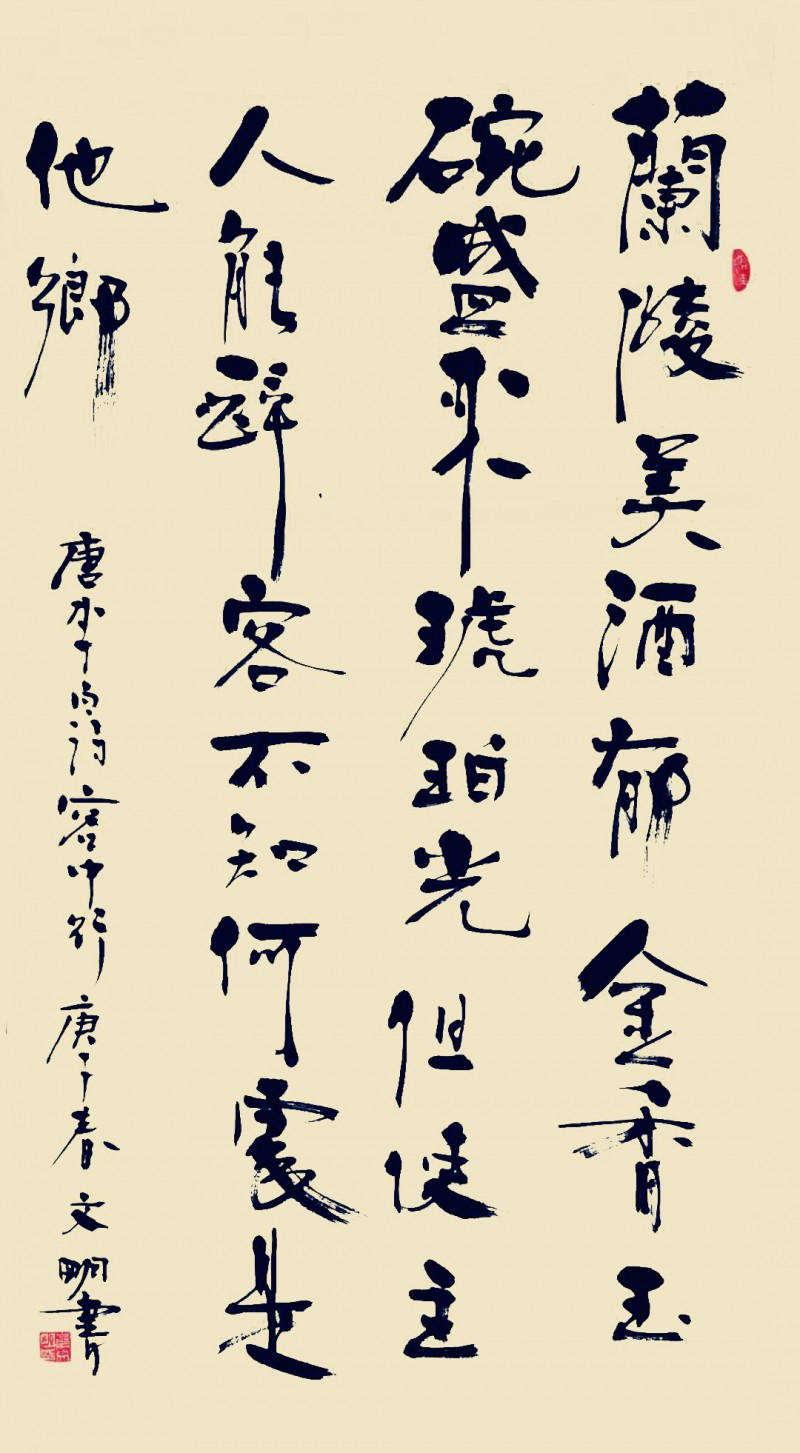 蘭陵美酒郁金香玉
碗盛來琥珀光但使主
人能醉客不知何處是
他鄉
唐李白詩客中行庚子春文明書